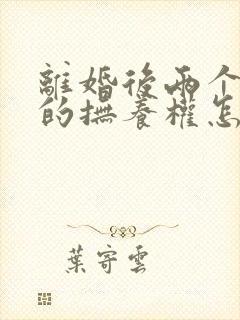 離婚後兩个
的撫養權怎
葉寄雲